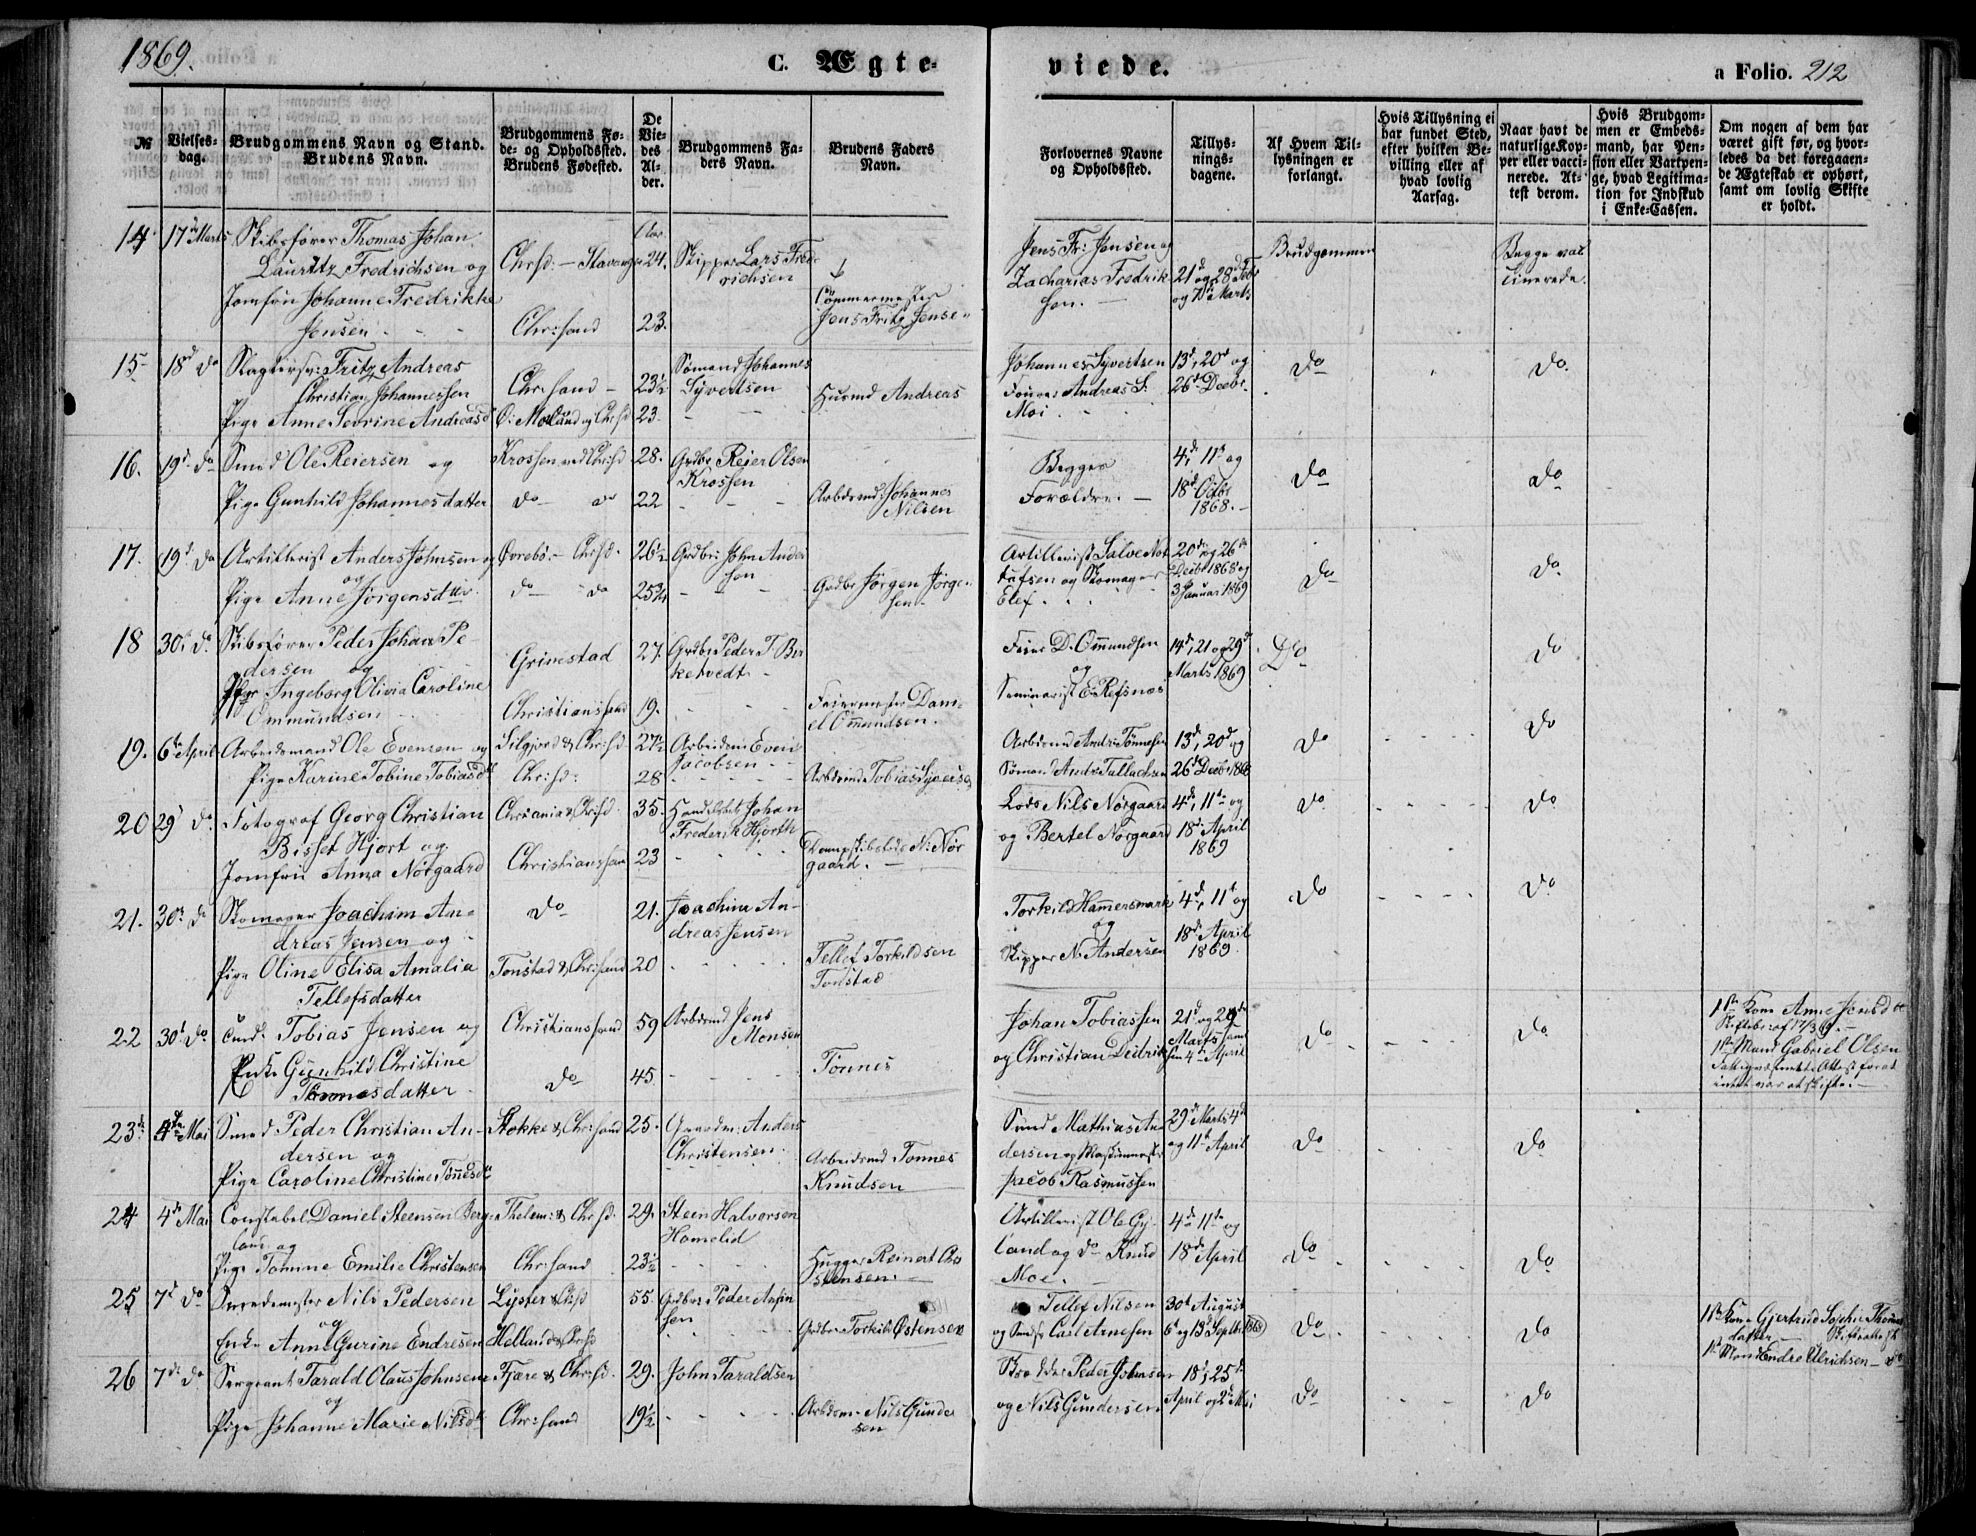 1869.
C. Ægte-
viede.
a Folio. 212
№
Vielses-
dag.
Brudgommens Navn og Stand.
Brudens Navn.
Brudgommens Fø-
de- og Opholdssted.
Brudens Fødested.
De
Vie-
des
Al-
der.
Brudgommens Fa-
ders Navn.
Brudens Faders
Navn.
Forlovernes Navne
og Opholdssted.
Tillys-
nings-
dagene.
Af Hvem Til-
lysningen er
forlangt.
Hvis Tillysning ei
har fundet Sted,
efter hvilken Be-
villing eller af
hvad lovlig
Aarsag.
Naar havt de
naturlige Kop-
per eller vacci-
nerede. At-
test derom.
Hvis Brudgom-
men er Embeds-
mand, har Pen-
sion eller Vartpen-
ge, hvad Legitima-
tion for Indskud
i Enke-Cassen.
Om nogen af dem har
været gift før, og hvor-
ledes da det foregaaen-
de Ægteskab er ophørt,
samt om lovlig Skifte
er holdt.
14. 17de Marts Skibsfører Thomas Johan
Lauritz Fredrichsen og
Jomfru Johanne Fredrikke
Jensen
Chrsd. – Stavanger
Chr:sand
24.
23.
Skipper Lars Fred-
richsen
Tømmermester
Jens Fritz Jensen
Jens Fr: Jensen og
Zacharias Fredrik-
sen.
21d og 28d Febr
og 7de Marts
Brudgommen
Begge vac-
cinerede.
15 18d do Fritz Andreas
Christian Johannessen
Pige Anne Severine Andreasd
Chr:sand
Ø: Moland og Chrsd
23½
23
Sømand Johannes
Syvertsen
Husmd Andreas
Johannes Syvertsen
Andreas S.
Moi
13d, 20d og
26d Decbr.
Do
Do.
16. 19d do Smed Ole Reiersen og
Pige Gunhild Johannesdatter
Krossen ved Chrsd
do – do
28.
22
Grdbr. Reier Olsen
Krossen
Arbdsmd Johannes
Nilsen
Begges
Forældre.
4d, 11t og
18d Octbr
1868.
Do
Do
17. 19d do Artillerist Anders Johnsen og
Pige Anne Jørgensdtr.
Øvrebø. – Chrsd.
do – do
26½
25¾
Grdbr: John Ander-
sen
Grdbr Jørgen Jørgen-
sen.
Artillerist Salve
og Skomager
Elef
20de og 26de
Decbr 1868 og
3 Januar 1869
Do
Do
18 30t do Skibsfører Peder Johan Pe-
dersen og
Ingeborg Olivia Caroline
Ommundsen
Grimestad
Christianssand
27.
19.
Grdbr Peder T. Bir-
ketvedt
Dani-
el Omundsen.
D. Omundsen
og
Seminarist E. Refsnæs
14d, 21 og 29d
Marts 1869
Do
Do
19. 6te April Arbeidsmand Ole Evensen og
Pige Karine Tobine Tobiasdtr
Silgjord & Chr:sd
Chr:sd:
27½
28
Arbeidsm: Even
Jacobsen
Arbdsmd Tobias Syversen
Arbdsmd Andr: Tønnesen
Sømand Andr. Tallaksen
13d, 20d og
26d Decbr 1868
Do
Do
20 29d do Fotograf Georg Christian
Bisset Hjort og
Jomfru Anna Nørgaard
Christiania & Chrsd.
Christianssand
35.
23
Handelsbet: Johan
Frederik Hjorth
N: Nør-
gaard.
Lods Nils Nørgaard
og Bertel Nørgaard
4de, 11te og
18de April
1869
Do
Do
21. 30t do Skomager Joachim An-
dreas Jensen og
Pige Oline Elisa Amalia
Tellefsdatter
Do
Tonstad & Chr:sand
21.
20
Joachim An-
dreas Jensen
Tellef Torkildsen
Tonstad
Torkild Hammersmark
og
Skipper N. Andersen
4d, 11t og
18d April
1869
Do
Do
22 30t do Tobias Jensen og
Enke Gunhild Christine
Tønnesdatter.
Christianssand
Do
59
45
Arbdsmd Jens
Monsen
Tønnes
Johan Tobiassen
og Christian Deidrik
21d og 29de
Marts samt
4de April
Do
Do
1ste Kone Anne Jensdtr
Skiftebr. af 17/3 69.
1ste Mand Gabriel Olsen
Fattigvæsenets Attest for at
intet var at skifte.
23de 4de Mai Smed Peder Christian An-
dersen og
Pige Caroline Christine Tønnesdtr
Stokke & Chr:sand
25.
Anders
Christensen
Arbeidsmd Tønnes
Knudsen
Smed Mathias An-
dersen og
Jacob Rasmussen
29d Marts 4de
og 11te April
Do
Do
24 4de Mai Constabel Daniel Steensen Berge-
land og
Pige Tomine Emilie Christensen
Thelem: & Chrsd.
Chr:sand
29.
23½
Steen Halvorsen
Homelid
Hugger Reinert Chri-
stensen.
Artillerist Ole Gy-
land og do Knud
Moe.
4de 11te og
18de April
Do
Do
25 7d do Smedemester Nils Pedersen
og
Enke Anne Gurine Endresen
Lyster & Chrsd
Helland & Chrsd
55.
Grdbr: Peder
sen
Grdbr Torkild Østensen
Tellef Nilsen
og Smdsv Carl Arnesen
30te August
6t og 13d Septbr 1868
Do
Do
1ste Kone Gjertrud Sophie Thomas-
datter
1ste Mand Endre Ulrichsen – do
26 7de do Sergeant Tarald Olaus Johnsen
og
Pige Johanne Marie Nilsdtr
Fjære & Chrsd.
Chr:sand
29.
19½
John Taraldsen
Arbdsm. Nils Gunder-
sen
Peder Johnsen
og Nils Gundersen
18d, 25de
April og 2d Mai
Do
Do